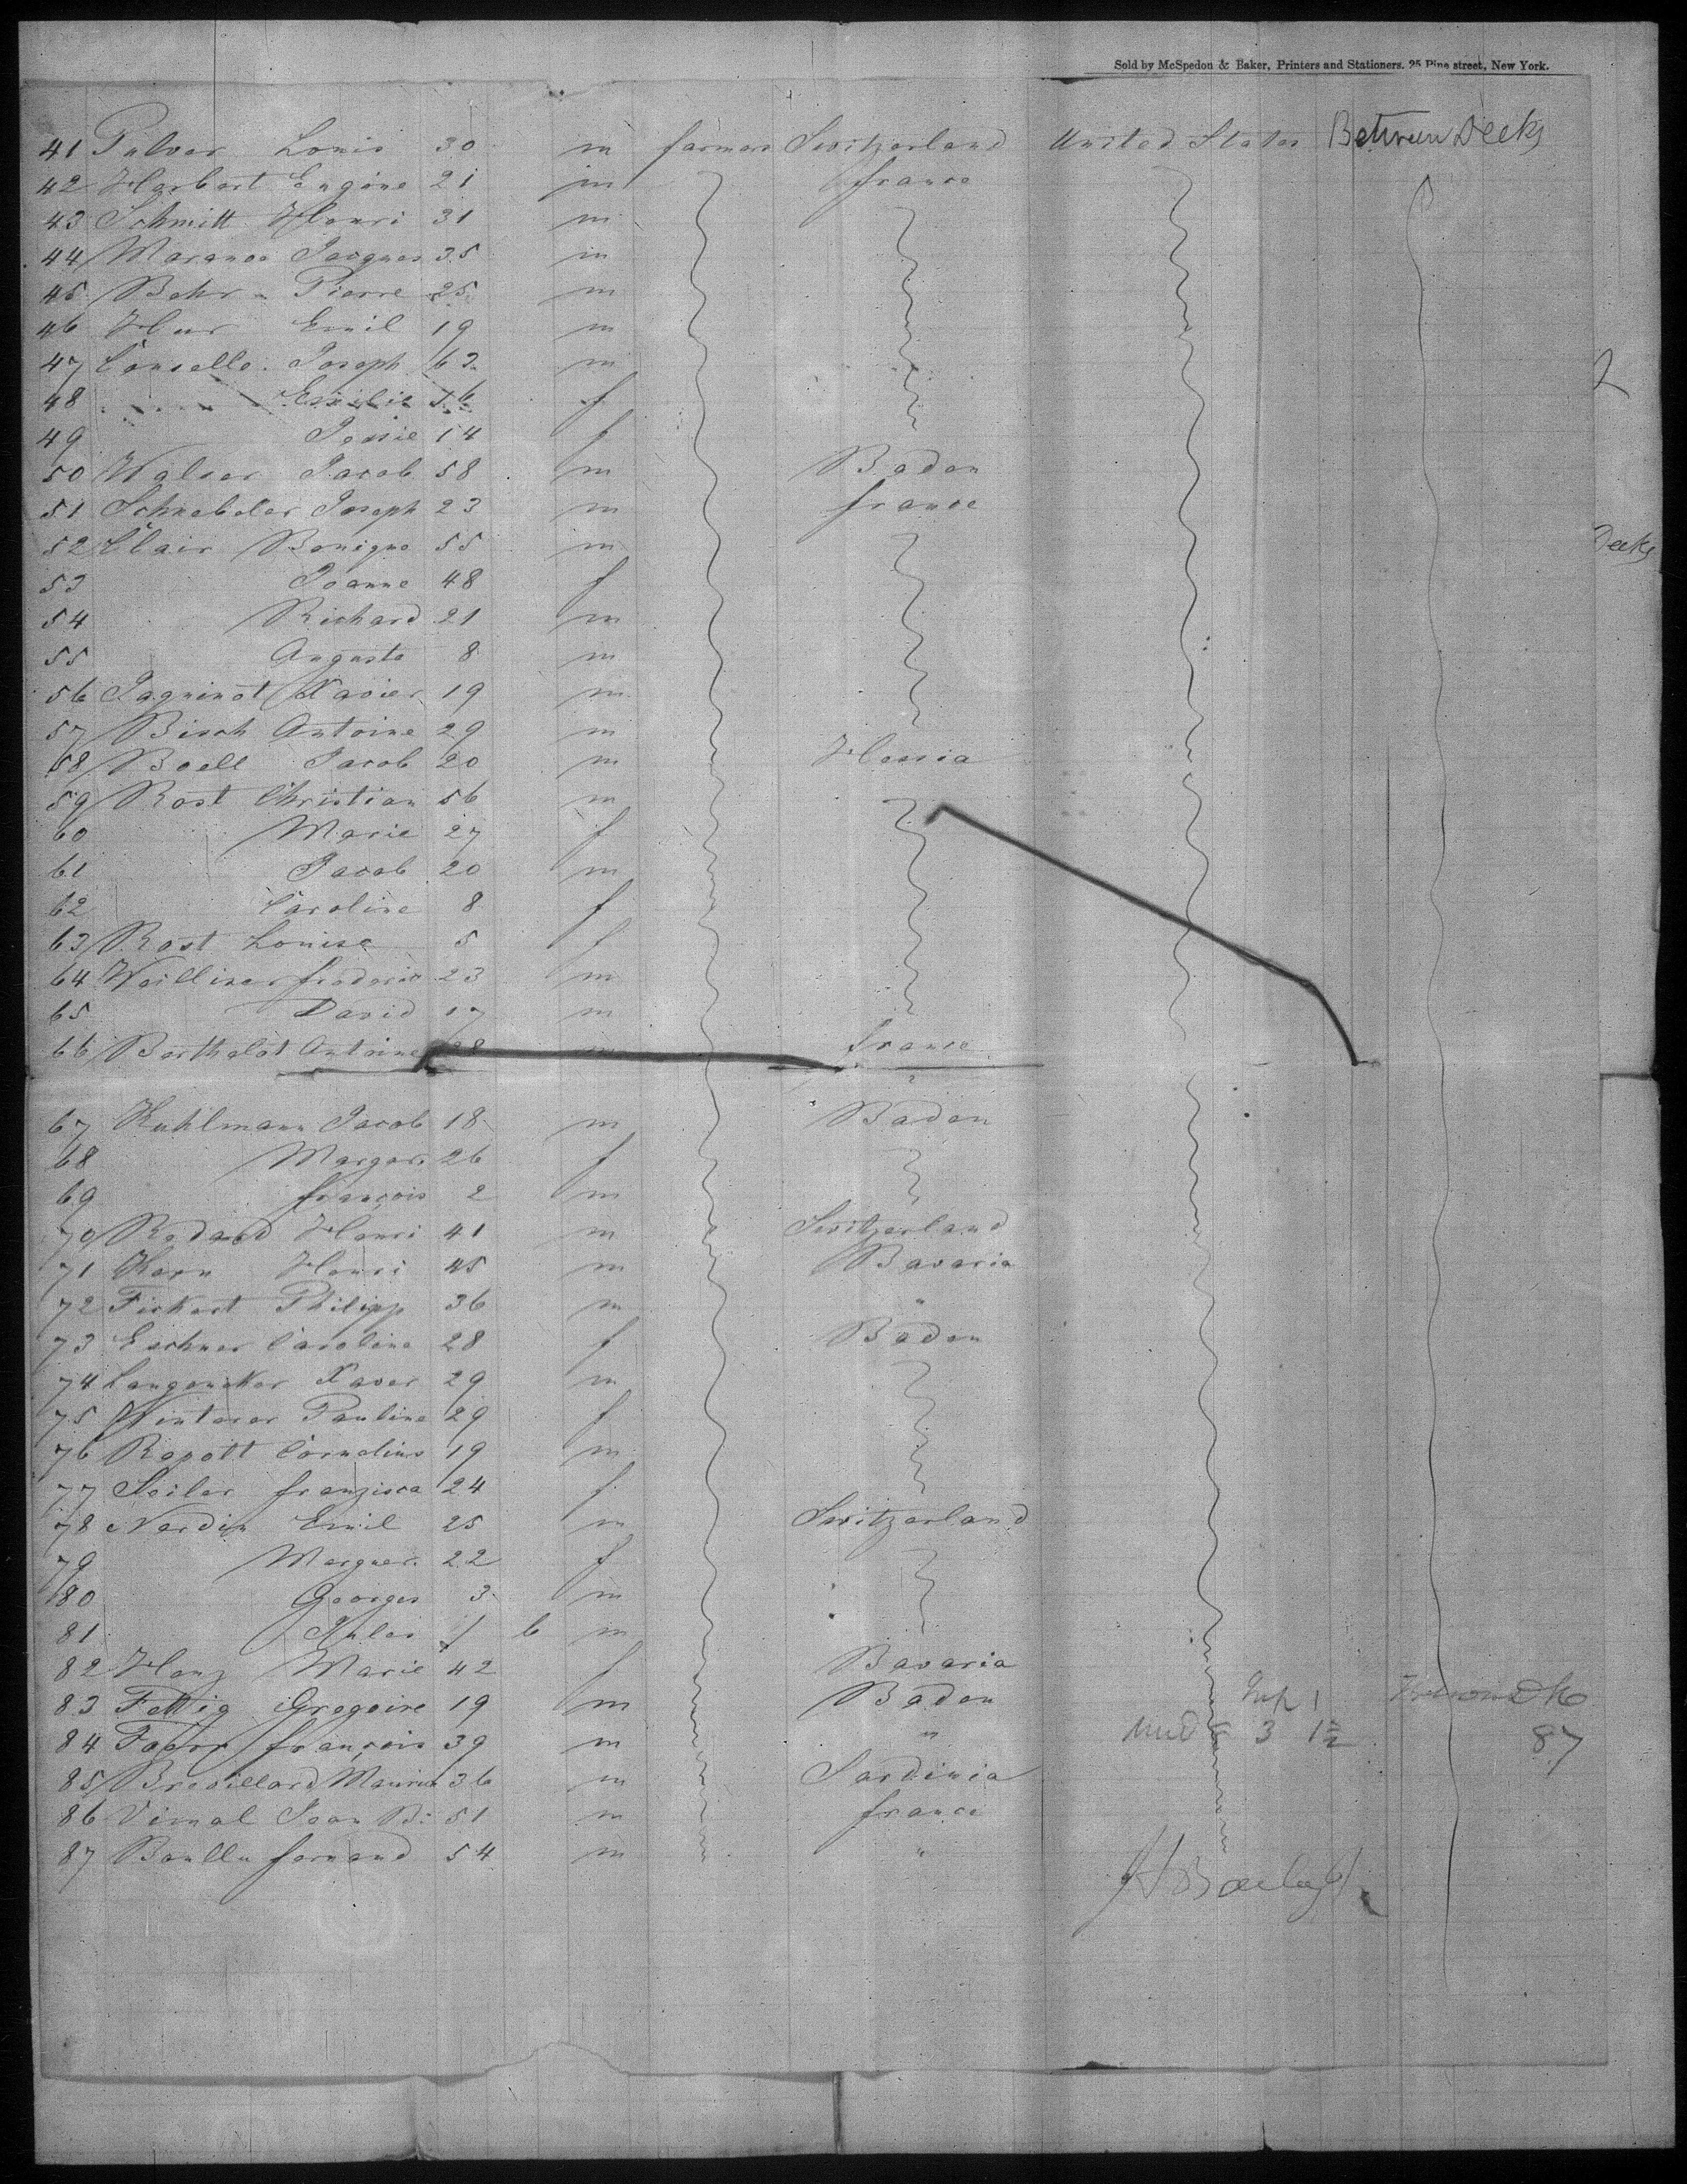 Sold by McSpedon & Baker, Printers and Stationers. 25 Pine street, New York.
41 Pulver Louis 30 m farmers Switzerland United States Between Decks
42 Herbert Eugène 21 m france
43 Schmitt Henri 31 m
44 Jacques 35 m
45 Behr Pierre 25 m
46 Emil 19 m
47 Joseph 62 m
48 Emilie 56 f
49 14 f
50 Walser Jacob 58 m Baden
51 Schnebeler Joseph 23 m france
52 Clair Benigne 55 m
Decks
53 Jeanne 48 f
54 Richard 21 m
55 Auguste 8 m
56 Xavier 19 m
57 Bisch Antoine 29 m
58 Boell Jacob 20 m Hessia
59 Rost Christian 56 m
60 Marie 27 f
61 Jacob 20 m
62 Caroline 8 f
63 Rost Louise 5 f
64 frederic 23 m
65 David 17 m
66 Berthelot Antoine 28 m france
67 Kuhlmann Jacob 18 m Baden
68 Margar. 26 f
69 françois 2 m
70 Redard Henri 41 m Switzerland
71 Kern Henri 45 m Bavaria
72 Fickert Philipp 36 m "
73 Eschner Caroline 28 f Baden
74 Langenekker Xaver 29 m
75 Winterer Pauline 29 f
76 Repott Cornelius 19 m
77 Seiler franzisca 24 f
78 Nardin Emil 25 m Switzerland
79 Marguer. 22 f
80 Georges 3 m
81 Jules / 6 m
82 Marie 42 f Bavaria
83 Fettig Gregoire 19 m Baden
84 françois 39 m " 3 87
85 36 m Sardinia
86 Vimal Jean B. 51 m france
87 fernand 54 m "